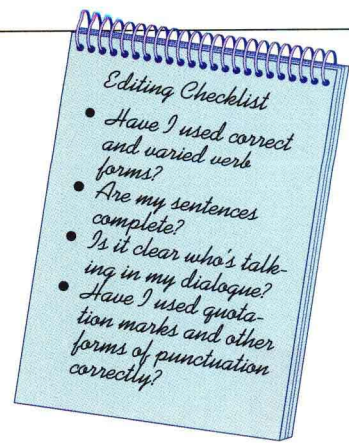 Editing Checklist
• Have I used correct
and varied verb
forms?
• Are my sentences
complete?
• Is it clear who's talk-
ing in my dialogue?
• Have I used quota-
tion marks and other
forms of punctuation
correctly?